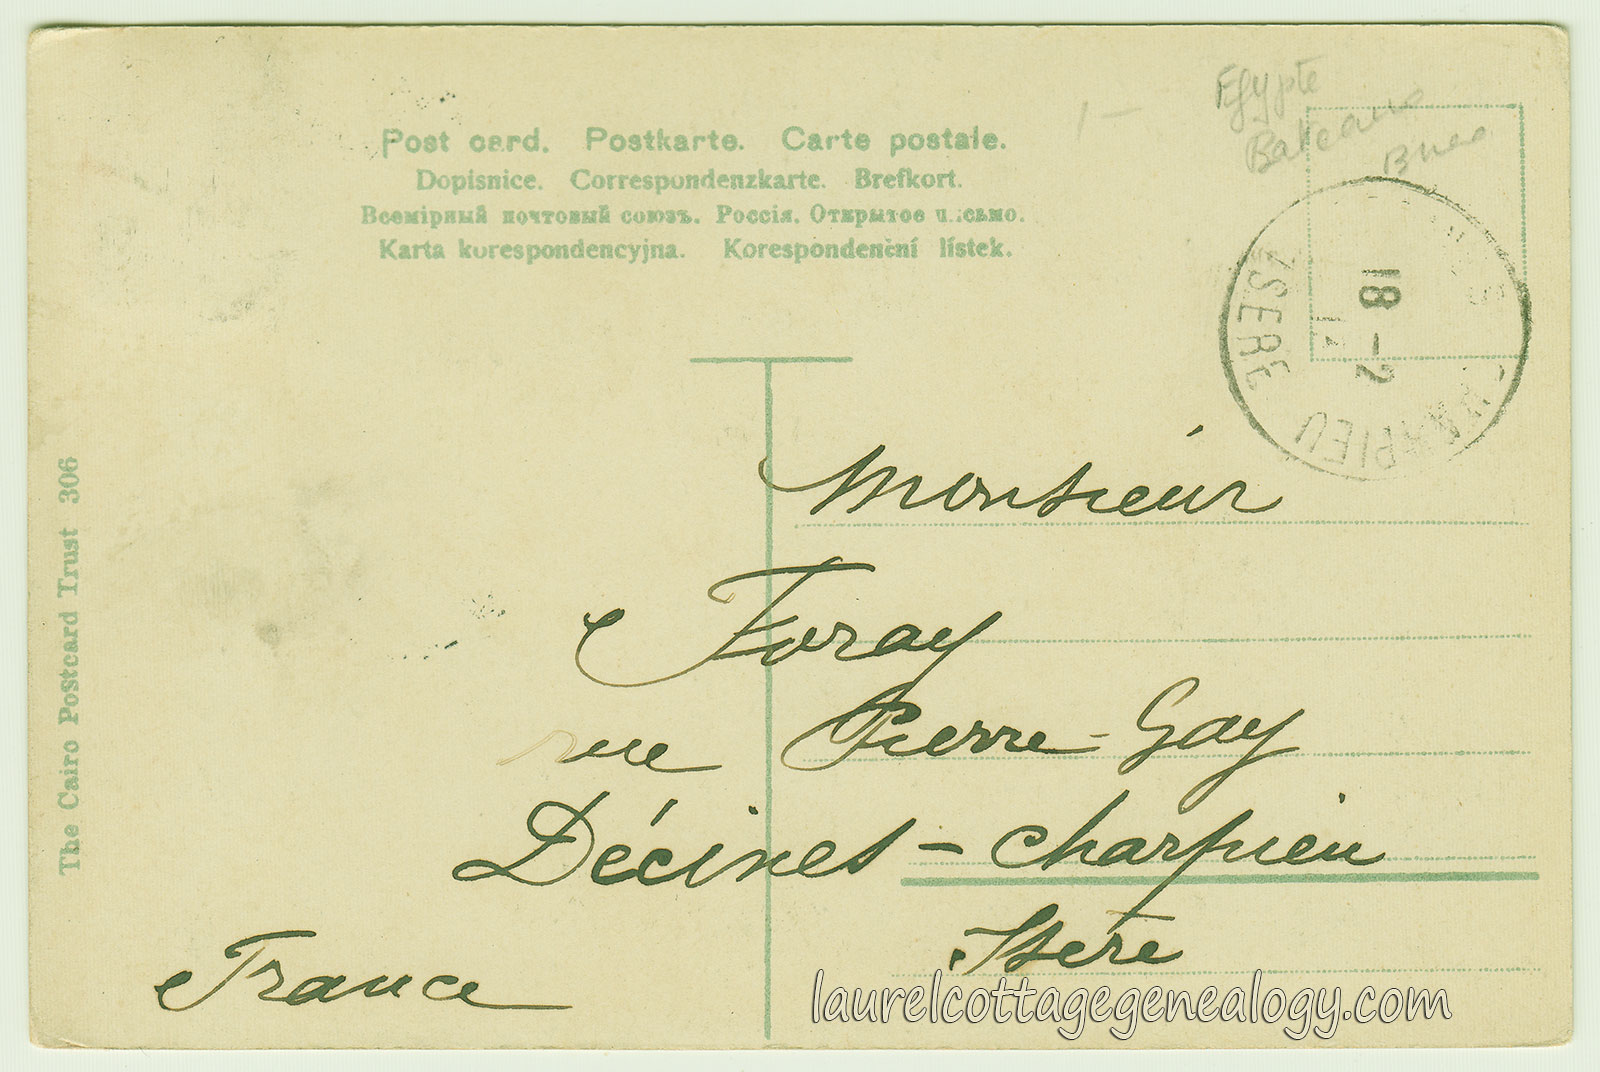 Egypte
Bateaux
1-
Post card. Postkarte. Carte postale.
Dopisnice. Correspondenzkarte. Brefkort.
Всемірный почтовый союзъ. Россія. Открытое письмо.
Karta korespondencyjna. Korespondenční lístek.
ISERE
18 -2
12
CHARPIEU
The Cairo Postcard Trust 306
Monsieur
Foray
rue Pierre-Gay
Décines - Charpieu
Isère
France
laurelcottagegenealogy.com